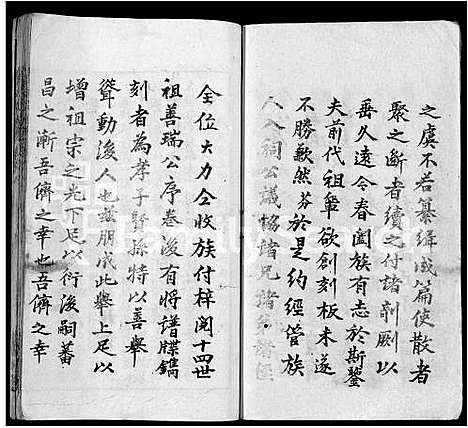 之虞不若纂緝成篇使散者
聚之斷者續之付諸剞劂以
垂久遠令春闔族有志於斯鑒
夫前代祖軰欲創刻板未遂
不勝歉然于於是約經管族
人入祠公議協諸兄諸弟諸侄
仝位大力仝收族付梓閱十四世
祖善瑞公序卷後有將譜牒鐫
刻者為孝子賢孫特以善舉
聳動後人也茲朋成此舉上足以
增祖宗之光下足以衍後嗣蕃
昌之漸吾儕之幸也吾儕之幸